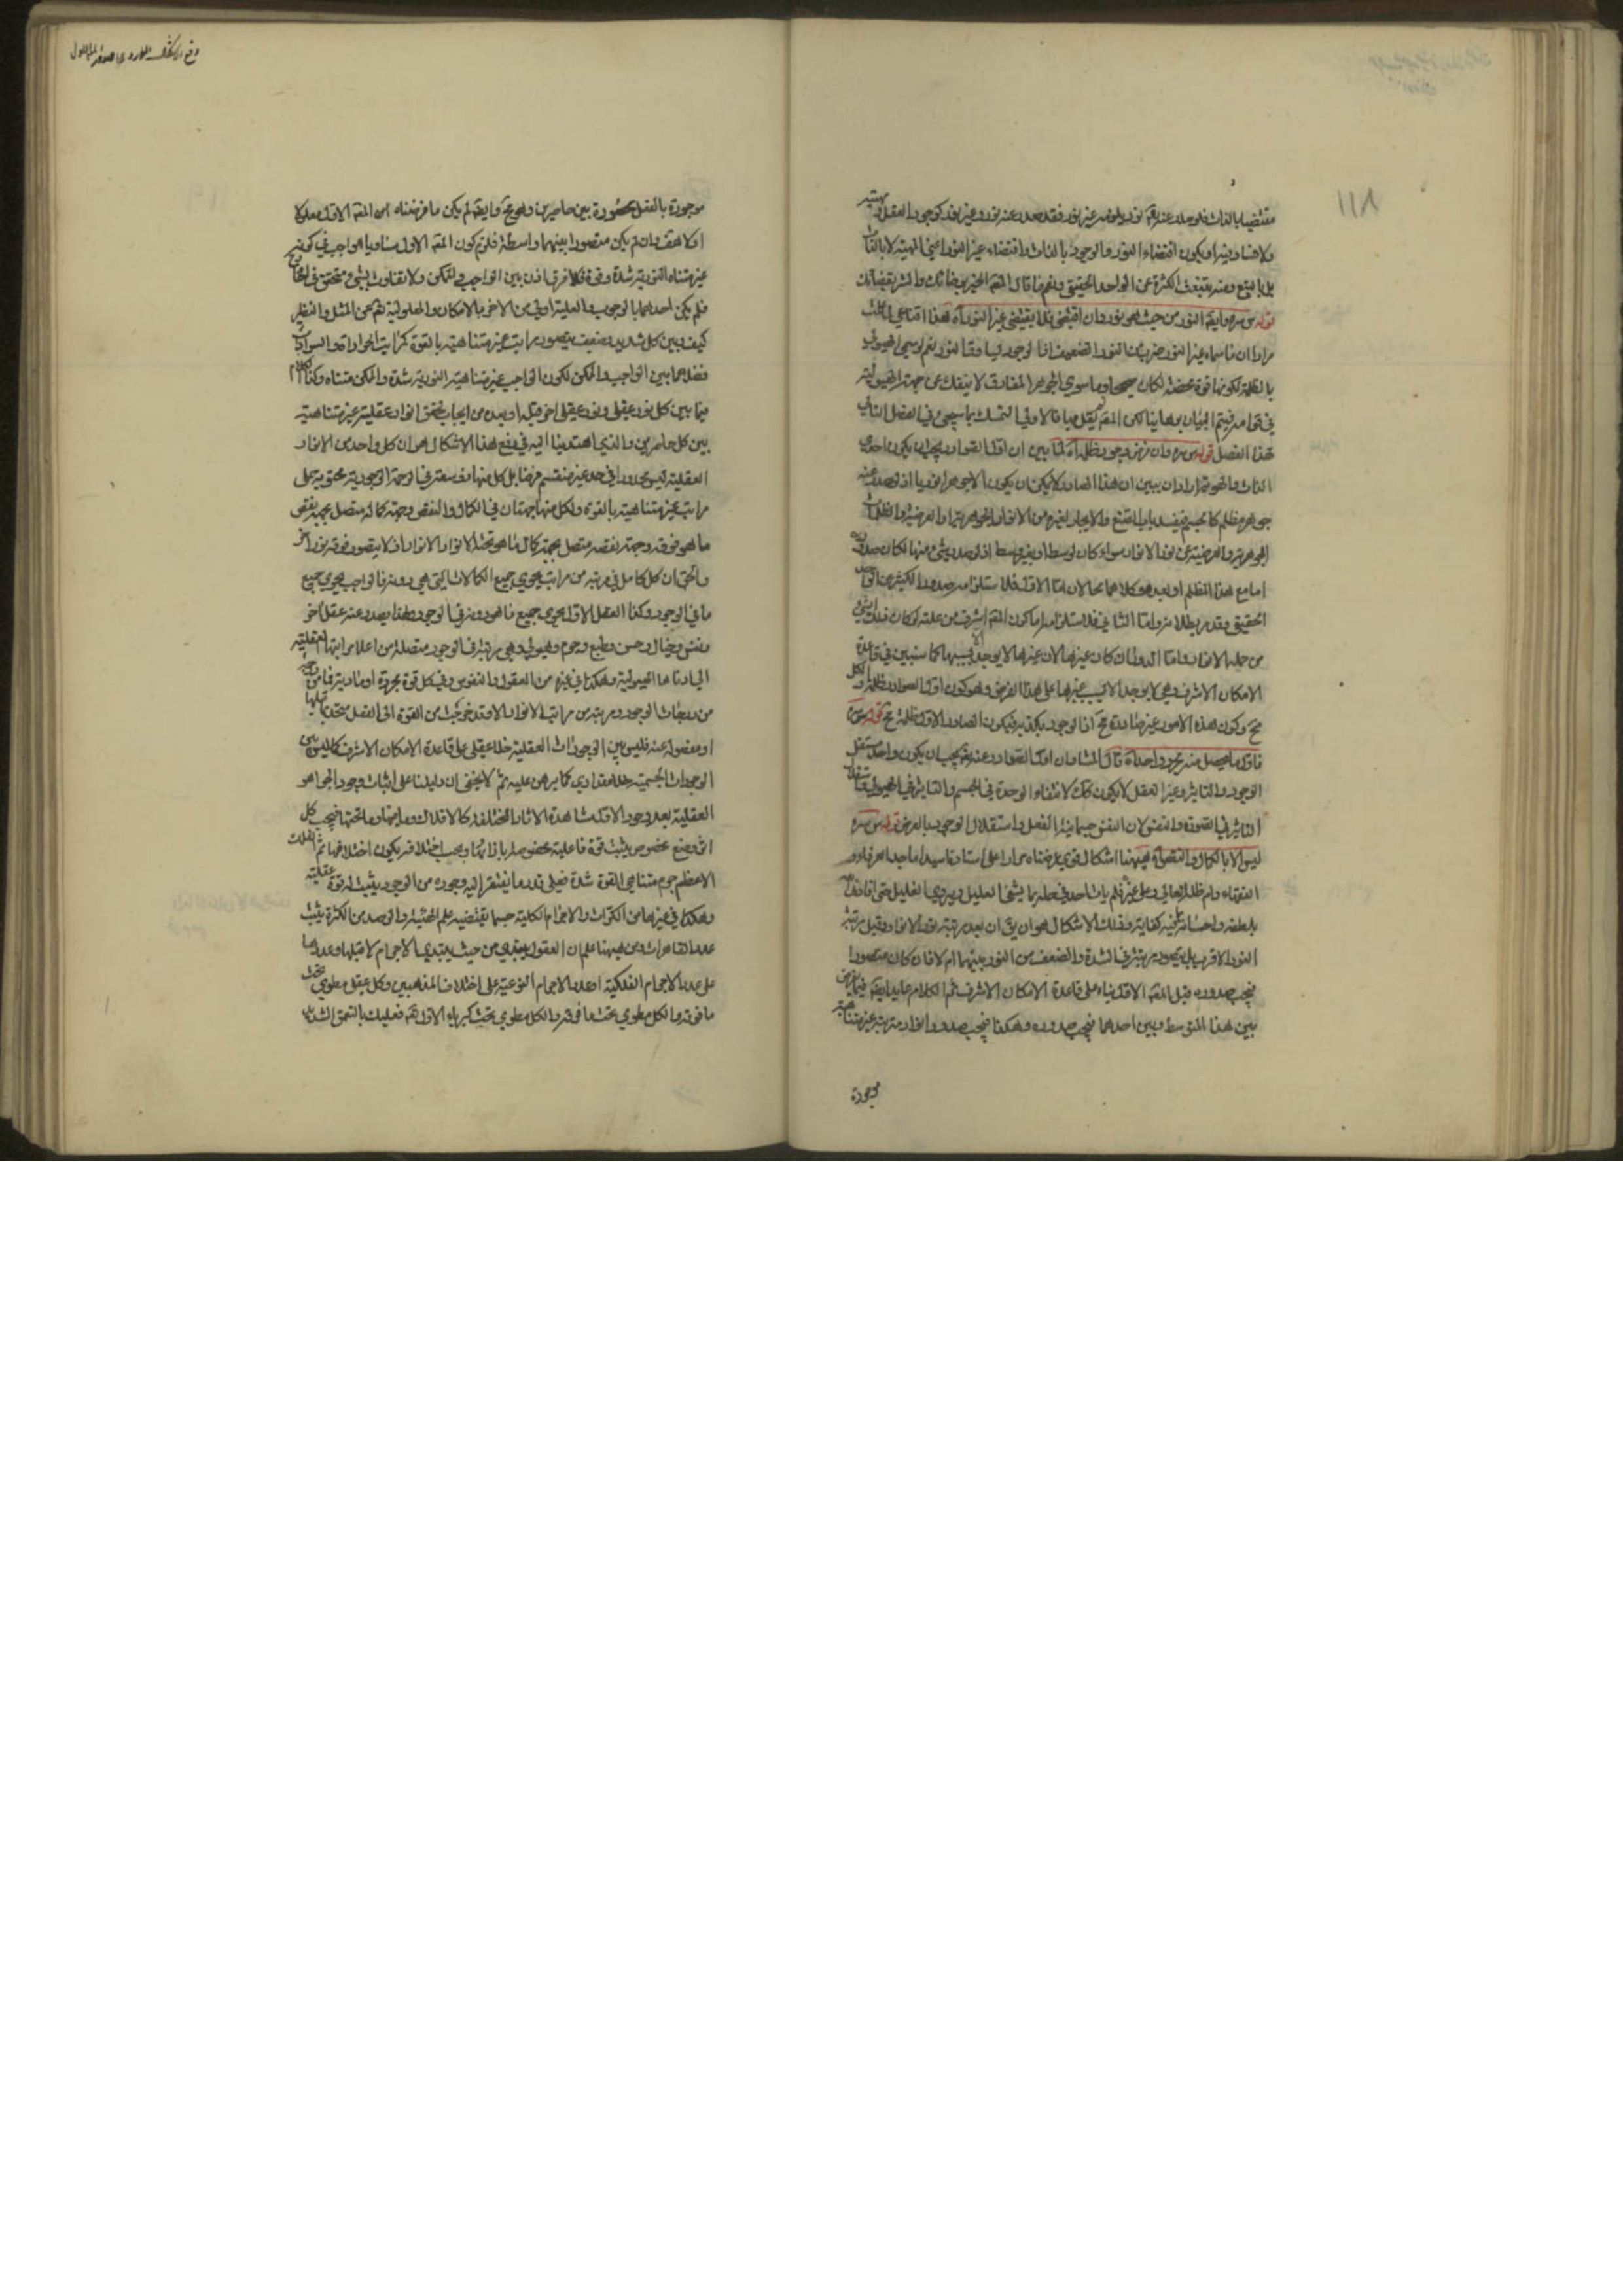 مقتضيا بالذات فلو صدر عنه نور وغير نور فقد صدر عنه نور وغير نور كوجود العقل
ولا فساد فيه او يكون اقتضاء النور والوجود بالذات واقتضاء غير النور اعنى المهية لا بالذات
بل بالتبع ومنه ينبعث الكثرة عن الواحد الحقيقى ونعم ما قال المعلم
قوله س سره وايضا النور من حيث هو نور وان اقتضى فلا يقتضى غير النور اه هذا اقناعى
مراده ان ما سماه غير النور ضرب من النور الضعيف اذا الوجود يساوق النور نعم لو سمى الهيولى
بالظلمة لكونها قوة محضة لكان صحيحا وما سوى الجوهر المفارق لا ينفك عن جهة الهيولية
فى قوامه فيتم البيان برهانيا لكن المصنف لم يقل بها فالاولى التمسك بما سيجى فى الفصل التالى
لهذا الفصل قوله س سره وان فرض وجود ظلمة اه لما بين ان اول الصوادر يجب ان يكون احدى
الذات والهوية اراد ان يبين ان هذا الصادر لا يمكن ان يكون الا جوهرا نوريا اذ لو صدر عنه
جوهر مظلم كالجسم فينسد باب الصنع والايجاد لغيره من الانوار الجوهرية والعرضية والظلمات
الجوهرية والعرضية عن نور الانوار سواء كان بوسط او بغير وسط اذ لو صدر شئ منها لكان صدوره
اما مع هذا المظلم او بعده وكلاهما محالان اما الاول فلاستلزامه صدور الكثير من الواحد
الحقيقى وقد مر بطلانه واما الثانى فلاستلزامه كون المعلول اشرف من علته لو كان ذلك الشئ
من جملة الانوار واما الدور ان كان غيرها لان غيرها لا يوجد الا بسببها كما سنبين فى قاعدة
الامكان الاشرف وهى لا يوجد الا بسبب غيرها على هذا الفرض وهو كون اول الصوادر ظلمة والكل
مح وكون هذه الامور غير صادرة مح اذا الوجود يكذبه فيكون الصادر الاول ظلمة مح قوله س سره
فاول ما يحصل منه نور مجرد واحد اه قال المشاؤن اول الصوادر عنه تعالى يجب ان يكون واحدا مستقل
الوجود والتاثير وغير العقل لا يكون كذلك لانتفاء الوحدة فى الجسم والتاثير فى الهيولى واستقلال
التاثير فى الصورة والنفس لان النفس جسمانية الفعل واستقلال الوجود بالعرض قوله س سره
ليس الا بالكمال والنقص اه ههنا اشكال قوى عرضناه مرارا على استادنا سيد اماجد العرفاء و
الفقهاء دام ظله العالى وعلى غيره فلم يات احد فى حله بما يشفى العليل ويروى الغليل حتى افاد الله
بلطفه واحسانه ما فيه كفاية وذلك الاشكال هو ان يق ان بعد مرتبة نور الانوار وقبل مرتبة
النور الاقرب هل يتصور مرتبة فى الشدة والضعف من النور بينهما ام لا فان كان متصورا
فيجب صدوره قبل المعلول الاول بناء على قاعدة الامكان الاشرف ثم الكلام عايد ايضا فيما يفرض
بين هذا المتوسط وبين احدهما فيجب صدوره وهكذا فيجب صدور انوار مترتبة غير متناهية
موجودة
موجودة بالفعل محصورة بين حاصرين وهو مح وايضا لم يكن ما فرضناه من المعلول الاول معلولا
اولا هف وان لم يكن متصورا بينهما واسطة فلزم كون المعلول الاول مساويا للواجب فى كونه
غير متناه النورية شدة وقوة فلا فرق اذن بين الواجب والممكن ولا تفاوت بشئ متحقق فى الخارج
فلم يكن احدهما بالوجوب والعلية اولى من الاخر بالامكان والمعلولية تعالى عن المثل والنظير
كيف وبين كل شديد وضعيف يتصور مراتب غير متناهية بالقوة كمراتب الحرارة والسوادات
فضلا عما بين الواجب والممكن لكون الواجب غير متناهية النورية شدة والممكن متناه وكذا الكلام
فيما بين كل نور عقلى ونور عقلى اخر قبله او بعده من ايجاب تحقق انوار عقلية غير متناهية
بين كل حاصرين والذى اهتدينا اليه فى دفع هذا الاشكال هو ان كل واحد من الانوار
العقلية ليس محدودا فى حد غير منقسم فرضا بل كل منها ذو سعة فى الرحمة الوجودية محتوية على
مراتب غير متناهية بالقوة ولكل منها جهتان فى الكمال والنقص وجهة كماله متصل بجهة نقص
ما هو فوقه وجهة نقصه متصل بجهة كمال ما هو تحته الا نور الانوار اذ لا يتصور فوقه نور اخر
والحق ان كل كامل فى مرتبة من مراتب يحوى جميع الكمالات التى هى دونه فالواجب يحوى جميع
ما فى الوجود وكذا العقل الاول يحوى جميع ما هو دونه فى الوجود ولهذا يصدر عنه عقل اخر
ونفس وخيال وحس وطبع وجرم وهيولى وهى مرتبة فى الوجود متصلة من اعلا مراتبها العقلية
الى ادناها الهيولية وهكذا فى غيره من العقول والنفوس وفى كل قوة مجردة او مادية فما من درجة
من درجات الوجود ومرتبة من مراتب الانوار الا وقد خرجت من القوة الى الفعل متحدة بما قبلها
او مفصولة عنه فليس بين الوجودات العقلية خلا عقلى على قاعدة الامكان الاشرف كما ليس بين
الوجودات الجسمية خلا مقدارى كما برهن عليه ثم لا يخفى ان دليلنا على اثبات وجود الجواهر
العقلية بعد وجود الاول مشاهدة الاثار المختلفة كالافلاك وما فيها وما تحتها فيجب كل
اثر وضع مخصوص يثبت قوة فاعلية مخصوصة بازائها ويجب اختلافه يكون اختلافها ثم الفلك
الاعظم جرم متناهى القوة شدة فعلى قدر ما يفتقر اليه وجوده من الوجود يثبت له قوة عقلية
وهكذا فى غيرها من الكرات والاجرام الكلية حسبما يقتضيه علم الهيئة والرصد من الكثرة يثبت
عدد القاهرات ومن ههنا علم ان العقول يبتدى من حيث يبتدى الاجرام لا قبلها وعددها
على عدد الاجرام الفلكية او عدد الاجرام النوعية على اختلاف المذهبين وكل عقل مطوى تحت
ما فوقه والكل مطوى تحت ما فوقه والكل مطوى تحت كبرياء الاول تعالى فعليك بالتعمق الشديد